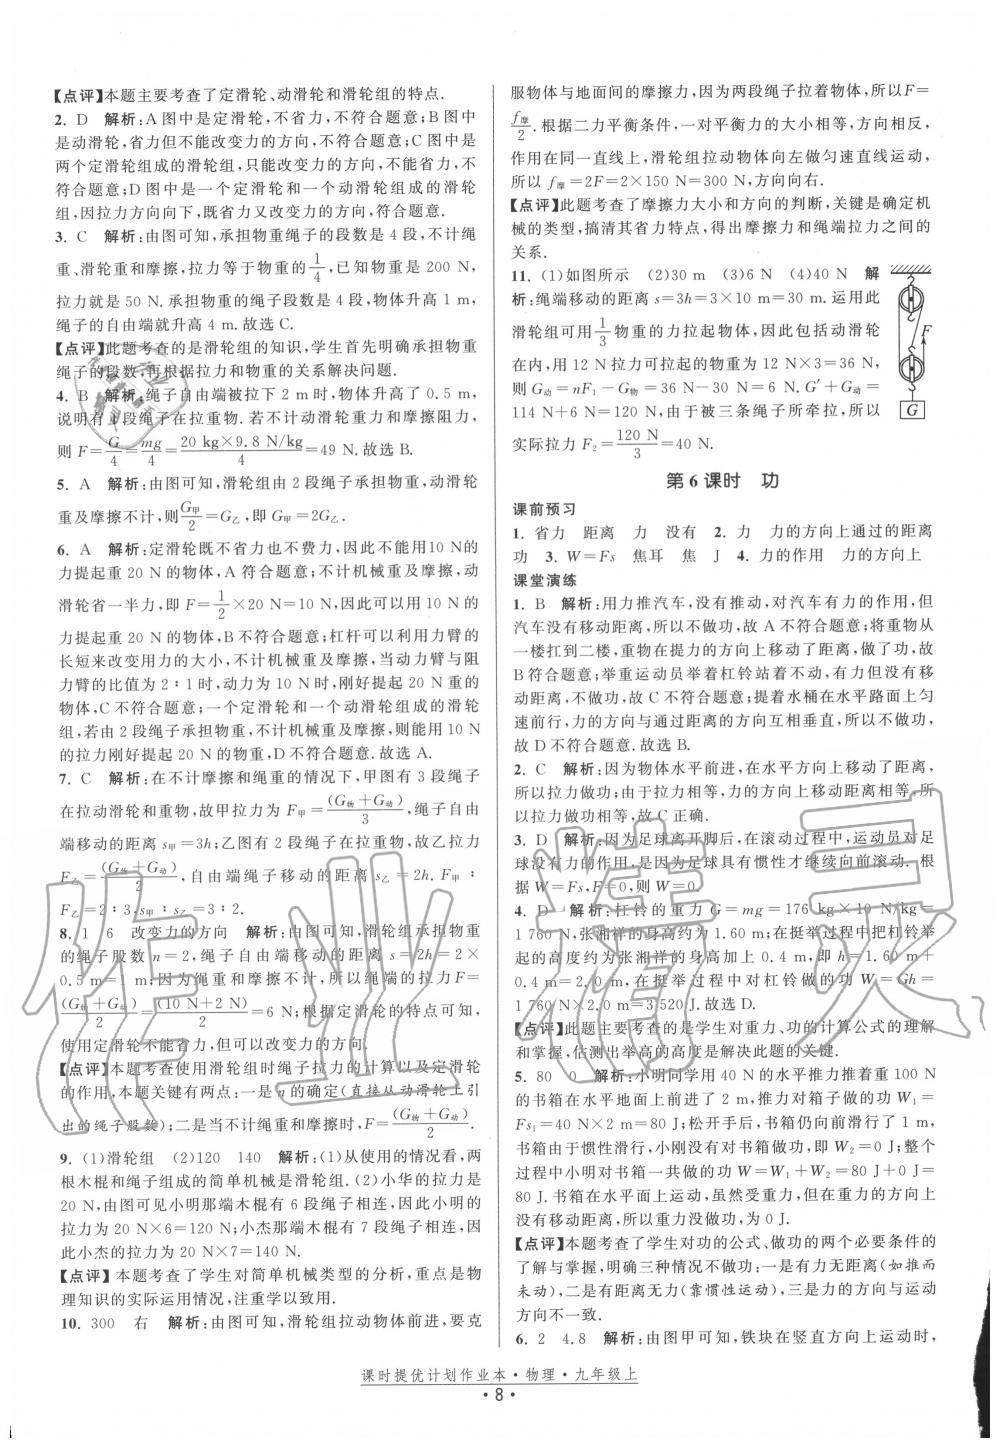 【点评】本题主要考查了定滑轮、动滑轮和滑轮组的特点.
2. D 解析:A图中是定滑轮,不省力,不符合题意;B图中是动滑轮,省力但不能改变力的方向,不符合题意;C图中是两个定滑轮组成的滑轮组,只能改变力的方向,不能省力,不符合题意;D图中是一个定滑轮和一个动滑轮组成的滑轮组,因拉力方向向下,既省力又改变力的方向,符合题意.
3. C 解析:由图可知,承担物重绳子的段数是4段,不计绳重、滑轮重和摩擦,拉力等于物重的1/4,已知物重是200 N,拉力就是50 N.承担物重的绳子段数是4段,物体升高1 m,绳子的自由端就升高4 m.故选C.
【点评】此题考查的是滑轮组的知识,学生首先明确承担物重绳子的段数,再根据拉力和物重的关系解决问题.
4. B 解析:绳子自由端被拉下2 m时,物体升高了0.5 m,说明有4段绳子在拉重物.若不计动滑轮重力和摩擦阻力,则F=G/4=mg/4=20 kg×9.8 N/kg/4=49 N.故选B.
5. A 解析:由图可知,滑轮组由2段绳子承担物重,动滑轮重及摩擦不计,则G甲/2=G乙,即G甲=2G乙.
6. A 解析:定滑轮既不省力也不费力,因此不能用10 N的力提起重20 N的物体,A符合题意;不计机械重及摩擦,动滑轮省一半力,即F=1/2×20 N=10 N,因此可以用10 N的力提起重20 N的物体,B不符合题意;杠杆可以利用力臂的长短来改变用力的大小,不计机械重及摩擦,当动力臂与阻力臂的比值为2∶1时,动力为10 N时,刚好提起20 N重的物体,C不符合题意;一个定滑轮和一个动滑轮组成的滑轮组,若由2段绳子承担物重,不计机械重及摩擦时,10 N的拉力刚好提起20 N的物重,D不符合题意.故选A.
7. C 解析:在不计摩擦和绳重的情况下,甲图有3段绳子在拉动滑轮和重物,故甲拉力为F甲=(G物+G动)/3,绳子自由端移动的距离s甲=3h;乙图有2段绳子在拉,故乙拉力F乙=(G物+G动)/2,自由端绳子移动的距离s乙=2h.F甲∶F乙=2∶3,s甲∶s乙=3∶2.
8. 1 6 改变力的方向 解析:由图可知,滑轮组承担物重的绳子股数n=2,绳子自由端移动的距离s=2h=2×0.5 m=1 m;因为绳重和摩擦不计,所以绳端的拉力F=(G物+G动)/2=(10 N+2 N)/2=6 N;根据定滑轮的特点可知,使用定滑轮不能省力,但可以改变力的方向.
【点评】本题考查使用滑轮组时绳子拉力的计算以及定滑轮的作用,本题关键有两点:一是n的确定(直接从动滑轮上引出的绳子股数);二是当不计绳重和摩擦时,F=(G物+G动)/2.
9. (1)滑轮组 (2)120 140 解析:(1)从使用的情况看,两根木棍和绳子组成的简单机械是滑轮组.(2)小华的拉力是20 N,由图可见小明那端木棍有6段绳子相连,因此小明的拉力为20 N×6=120 N;小杰那端木棍有7段绳子相连,因此小杰的拉力为20 N×7=140 N.
【点评】本题考查了学生对简单机械类型的分析,重点是物理知识的实际运用情况,注重学以致用.
10. 300 右 解析:由图可知,滑轮组拉动物体前进,要克服物体与地面间的摩擦力,因为两段绳子拉着物体,所以F=f摩/2.根据二力平衡条件,一对平衡力的大小相等,方向相反,作用在同一直线上,滑轮组拉动物体向左做匀速直线运动,所以f摩=2F=2×150 N=300 N,方向向右.
【点评】此题考查了摩擦力大小和方向的判断,关键是确定机械的类型,搞清其省力特点,得出摩擦力和绳端拉力的大小关系.
11. (1)如图所示 (2)30 m (3)6 N (4)40 N 解析:绳端移动的距离s=3h=3×10 m=30 m.运用此滑轮组可用1/3物重的力拉起物体,因此包括动滑轮在内,用12 N拉力可拉起的物重为12 N×3=36 N,则G动=nF1-G物=36 N-30 N=6 N.G′+G动=114 N+6 N=120 N,由于被三条绳子所牵拉,所以实际拉力F2=120 N/3=40 N.
F
G
第6课时 功
课前预习
1. 省力 距离 力 没有 2. 力 力的方向上通过的距离
功 3. W=Fs 焦耳 焦 J 4. 力的作用 力的方向上
课堂演练
1. B 解析:用力推汽车,没有推动,对汽车有力的作用,但汽车没有移动距离,所以不做功,故A不符合题意;将重物从一楼扛到二楼,重物在提力的方向上移动了距离,做了功,故B符合题意;举重运动员举着杠铃站着不动,有力但没有移动距离,不做功,故C不符合题意;提着水桶在水平路面上匀速前行,力的方向与通过距离的方向互相垂直,所以不做功,故D不符合题意.故选B.
2. C 解析:因为物体水平前进,在水平方向上移动了距离,所以水平拉力做功相等,力的方向上移动的距离相等,所以拉力做功相等,故C正确.
3. D 解析:因为足球离开脚后,在滚动过程中,运动员对足球没有力的作用,是因为足球具有惯性才继续向前滚动.根据W=Fs,F=0,则W=0.
4. D 解析:杠铃的重力G=mg=176 kg×10 N/kg=1 760 N,张湘祥的身高约为1.60 m;在挺举过程中把杠铃举起的高度约为张湘祥的身高加上0.4 m,即h=1.60 m+0.4 m=2.0 m,在挺举过程中对杠铃做的功W=Gh=1 760 N×2.0 m=3 520 J.故选D.
【点评】此题主要考查的是学生对重力、功的计算公式的理解和掌握,估测出举高的高度是解决此题的关键.
5. 80 解析:小明同学用40 N的水平推力推着重100 N的书箱在水平地面上前进了2 m,推力对书箱做了的功W1=Fs1=40 N×2 m=80 J;松开手后,书箱仍向前滑行了1 m,书箱由于惯性滑行,小刚没有对书箱做功,即W2=0 J;整个过程中小明对书箱一共做的功W=W1+W2=80 J+0 J=80 J.书箱在水平面上运动,虽然受重力,但在重力的方向上没有移动距离,所以重力没有做功,为0 J.
【点评】本题考查了学生对功的公式、做功的两个必要条件的了解与掌握,明确三种情况不做功:一是有力无距离(如推而未动),二是有距离无力(靠惯性运动),三是力的方向与运动方向不一致.
6. 2 4.8 解析:由图甲可知,铁块在竖直方向上运动时,
课时提优计划作业本·物理·九年级上
·8·
作业精灵